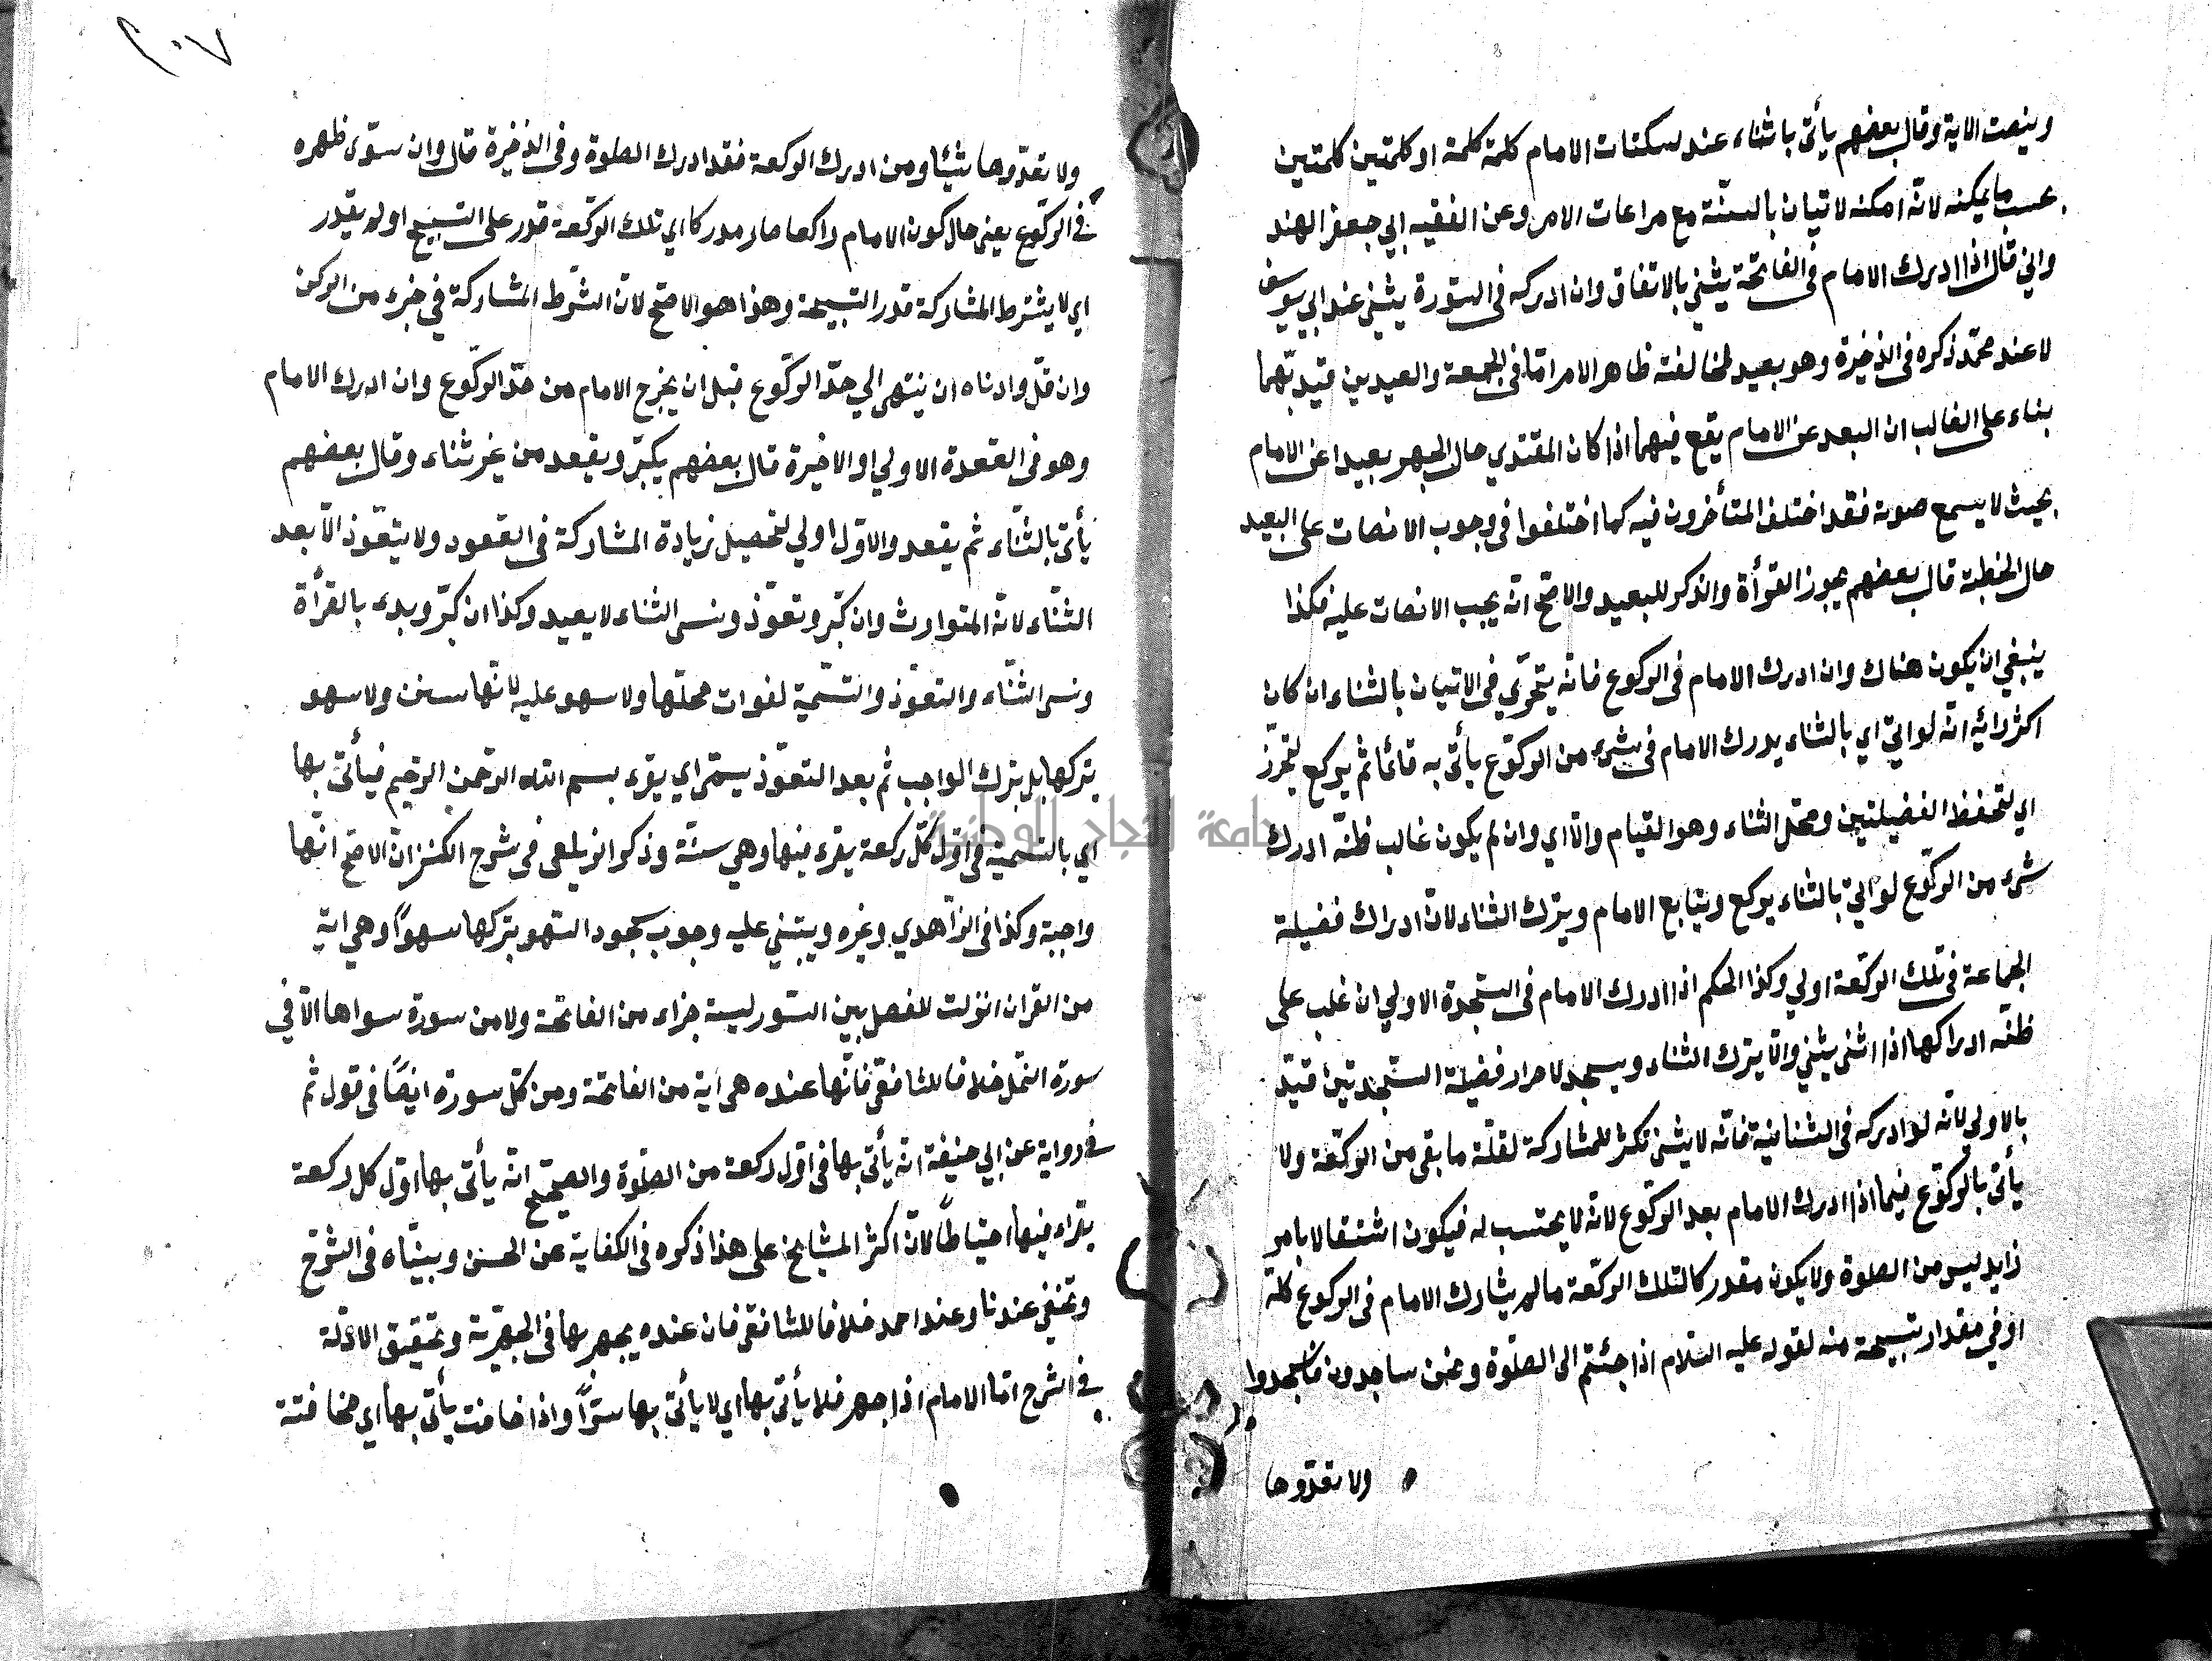 وينصت الاية وقال بعضهم يأتى باثناء عند سكتات الامام كلمة كلمة او كلمتين كلمتين
بحسب ما يمكنه لانه امكنه لاتيان بالسنّة مع مراعات الامر وعن الفقيه ابي جعفر الهند
واني قال اذا ادرك الامام فى الفاتحة يثني بالاتفاق وان ادركه فى السّورة يثني عند ابي يوسف
لا عند محمّد ذكره فى الذخيرة وهو بعيد لمخالفته ظاهر الامر امّا فى الجمعة والعيدين قيد بهما
بناء على الغالب ان البعد عن الامام يقع فيهما اذا كان المقتدي حال الجهر بعيدا عن الامام
بحيث لا يسمع صوته فقد اختلف المتأخرون فيه كما اختلفوا فى وجوب الانصات على البعيد
حال الخطبة قال بعضهم يجوز القرأة والذكر للبعيد والاصحّ انّه يجب الانصات عليه فكذا
ينبغي ان يكون هناك وان ادرك الامام فى الركوع فانّه يتحرّي فى الاتيان بالثناء ان كان
اكثر رائيه انّه لو اتيّ اي بالثناء يدرك الامام فى شئ من الركوّع يأتى به قائما ثم يركع لتحرّز
اي لتحفظ الفضيلتين ومحلّ الثناء وهو القيام والّا اي وان لم يكون غالب ظنّه ادرك
شئ من الركوّع لو اتيّ بالثناء يركع ويتابع الامام ويترك الثناء لانّ ادراك فضيلة
الجماعة فى تلك الركعّة اولي وكذا الحكم اذا ادرك الامام فى السّجدة الاولي ان غلب على
ظنّه ادراكها اذا اثنى يثني والّا يترك الثناء ويسجد لاحراز فضيلة السّجدتين قيّد
بالاولي لانّه لو ادركه فى الثنانية فانّه لا يثنى تكثر للمشاركة لقلّة ما بقى من الركعّة ولا
يأتى بالركوّع فيما اذا ادرك الامام بعد الركوّع لانه لا يحتسب له فيكون اشتقالا بامر
زايد ليس من الصلوة ولا يكون مقدركا لتلك الركعّة ما لم يشارك الامام فى الركوع كلّه
او في مقدار تسبيحة منه لقوله عليه السّلام اذا جئتم الى الصلوة ونحن ساجدون فاسجدوا
ولا تعدّوها
٣٠٧
ولا تعدّوها شيئا ومن ادرك الركعة فقد ادرك الصلوة وفى الذخيرة قال وان سوّى ظهره
فى الركوّع يعنى حال كون الامام راكعا صار مدركا اي تلك الركعّة قدر على التسبيح او لم يقدر
اي لا يشترط المشاركة قدر التسبيحة وهذا هو الاصحّ لان الشّرط المشاركة في جزء من الركن
وان قلّ وادناه ان ينتهى الي حدّ الركوّع قبل ان يخرج الامام من حدّ الركوّع وان ادرك الامام
وهو فى القعدة الاولي او الاخيرة قال بعضهم يكبّر ويقعد من غير ثناء وقال بعضهم
يأتى بالثنّاء ثم يقعد والاوّل اولي لتحصيل زيادة المشاركة فى القعود ولا يتعّوذ الّا بعد
الثنّاء لانّه المتوارث وان كبّر وتعوّذ ونسى الثناء لا يعيد وكذا ان كبّر وبدء بالقرأة
ونسى الثنّاء والتعوّذ والتسّمية لفوات محلّها ولا سهو عليه لانّها سنن ولا سهو
بتركها بل بترك الواجب ثم بعد التعوّذ يسمّى اي يقرء بسم الله الرّحمن الرّحيم فيأتى بها
اي بالتسمية فى اوّل كلّ ركعة يقرء فيها وهي سنّة وذكر الزيلعى فى شرح الكنز انّ الاصحّ انّها
واجبة وكذا فى الزّاهدي وغره ويبتني عليه وجوب سجود السّهو بتركها سهوًا وهي اية
من القران انزلت للفصل بين السّور ليسة جزاء من الفاتحة ولا من سورة سواها الّا في
سورة النّمل خلافا للشافعّى فانّها عنده هى آية من الفاتحة ومن كلّ سورة ايضًا فى قول ثم
فى رواية عن ابي حنيفة انّه يأتى بها فى اوّل ركعة من الصلوة والصحّيح انّه يأتى بها اوّل كل ركعة
يقراء فيها احتياطًا لانّ اكثر المشايخ على هذا ذكره فى الكفاية عن الحسن وبينّاه فى الشرح
وتخفي عندنا وعند احمد خلافا للشافعّى فان عنده يجهر بها فى الجهريّة وتحقيق الادلّة
فى الشرح امّا الامام اذا جهر فلا يأتى بها اي لا يأتى بها سرّاً واذا خافت يأتى بها اي مخافتة
جامعة النجاح الوطنية